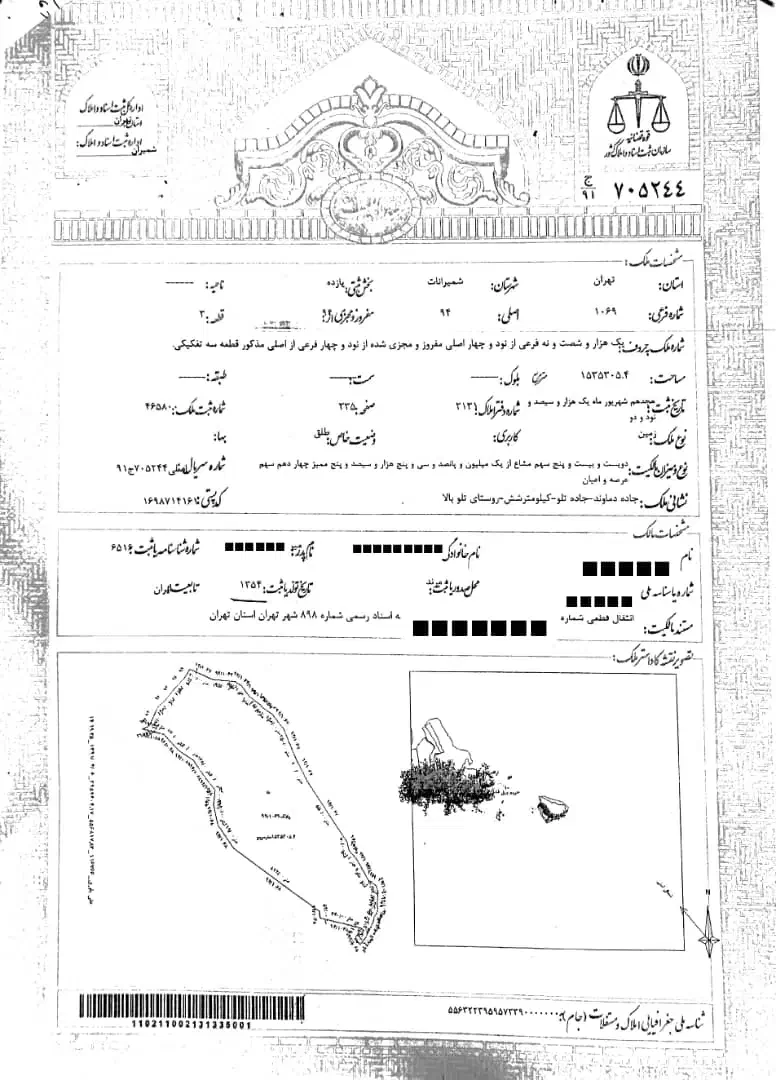 قوه قضائیه
سازمان ثبت اسناد و املاک کشور
اداره کل ثبت اسناد و املاک
استان تهران
اداره ثبت اسناد و املاک:
شمیران
ج ۹۱ ۷۰۵۲۴۴
مشخصات ملک:
استان: تهران شهرستان: شمیرانات بخش ثبتی: یازده ناحیه: -----
شماره فرعی: ۱۰۶۹ اصلی: ۹۴ مفروز و مجزی از: ۹۴ قطعه: ۳
شماره ملک به حروف: یک هزار و شصت و نه فرعی از نود و چهار اصلی مفروز و مجزی شده از نود و چهار فرعی از اصلی مذکور قطعه سه تفکیکی.
مساحت: ۱۵۳۵۳۰۵.۴ مترمربع بلوک: ----- سمت: ----- طبقه: -----
تاریخ ثبت: هجدهم شهریور ماه یک هزار و سیصد و نود و دو شماره دفتر املاک: ۲۱۳۱ صفحه: ۳۳۵ شماره ثبت ملک: ۴۶۵۸۰
نوع ملک: زمین کاربری: وضعیت خاص: طلق بهاء:
نوع و میزان مالکیت: دویست و بیست و پنج سهم مشاع از یک میلیون و پانصد و سی و پنج هزار و سیصد و پنج ممیز چهار دهم سهم شماره سریال: ۷۰۵۲۴۴ج۹۱
عرصه و اعیان
نشانی ملک: جاده دماوند-جاده تلو-کیلومترشش-روستای تلو بالا کد پستی: ۱۶۹۸۷۱۴۱۶۱
مشخصات مالک:
نام نام خانوادگی: نام پدر: شماره شناسنامه یا ثبت: ۶۵۱۶
شماره یا شناسه ملی محل صدور یا ثبت: تاریخ تولد یا ثبت: ۱۳۵۴ تابعیت: ایران
مستند مالکیت: انتقال قطعی شماره به اسناد رسمی شماره ۸۹۸ شهر تهران استان تهران
تصویر نقشه کاداستر ملک:
N
شناسه ملی جغرافیایی املاک و مستغلات (جام):
110211002131335001